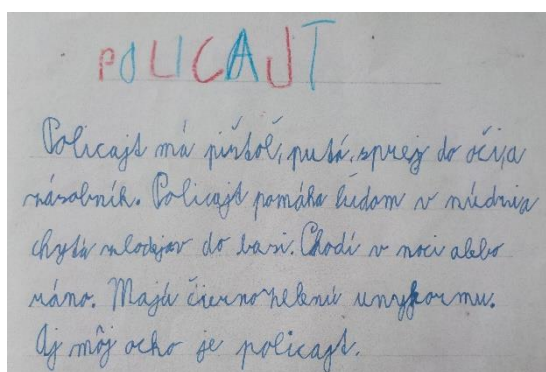 POLICAJT
Policajt má pištoľ, putá, sprej do očí, a
zásobník. Policajt pomáha ľuďom v núdzi a
chytá zlodejov do basi. Chodí v noci alebo
ráno. Majú čiernozelenú unyformu.
Aj môj ocko je policajt.